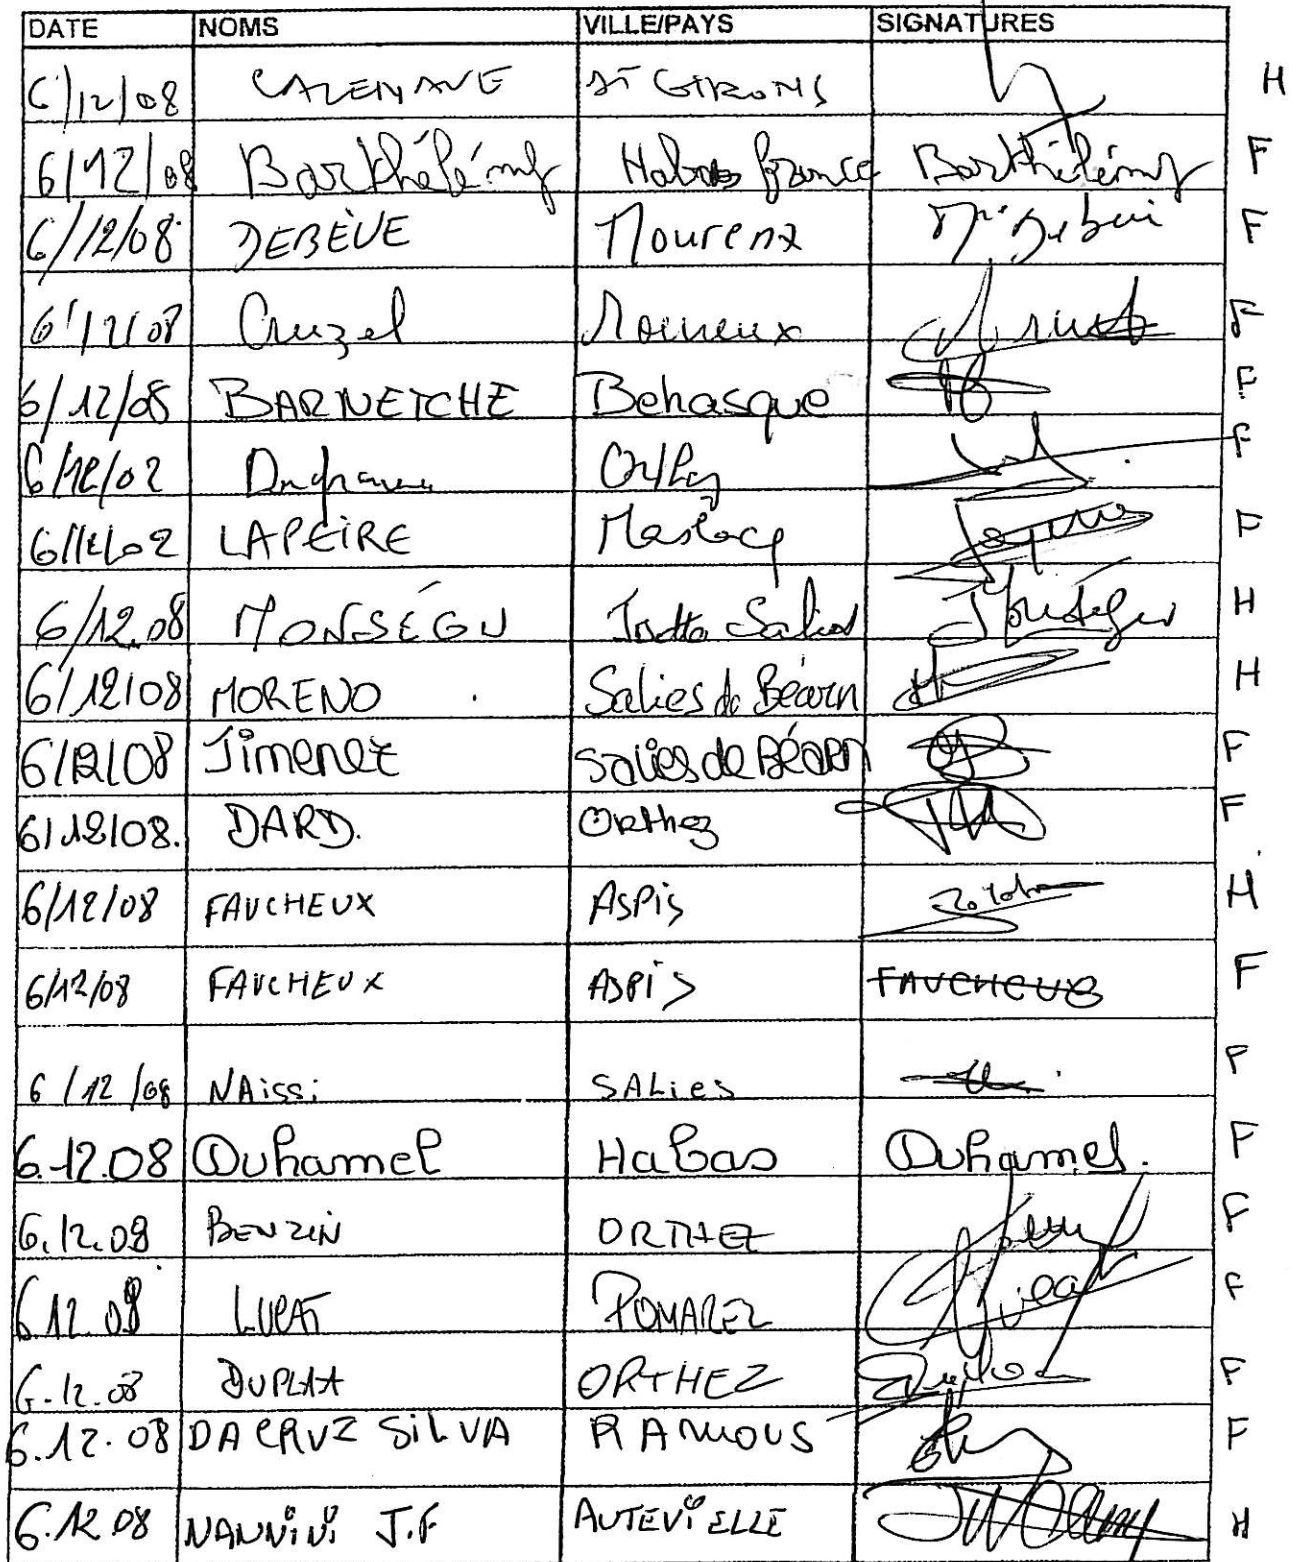 DATE NOMS VILLE/PAYS SIGNATURES
6/12/08 CAZENAVE ST GIRONS H
6/12/08 Barthélémy Habas france Barthélémy F
6/12/08 DEBÈVE Mourenx F
6/12/08 Cruzel Mourenx F
6/12/08 BARNETCHE Behasque F
6/12/02 Orthez F
6/12/02 LAPEIRE Maslacq F
6/12.08 MONSÉGU Salies Monségu H
6/12/08 MORENO Salies de Béarn H
6/12/08 Jimenez Salies de BÉARN F
6/12/08. DARD. Orthez F
6/12/08 FAUCHEUX ASPiS H
6/12/08 FAUCHEUX ASPiS FAUCHEUX F
6/12/08 NAissi SALies F
6.12.08 Duhamel Habas Duhamel. F
6.12.08 BENZIN ORTHEZ F
6.12.08 LUCAT POMAREZ F
6.12.08 DUPLAA ORTHEZ F
6.12.08 DA CRUZ SiLVA RAMOUS F
6.12.08 NANNiNi J.F AUTEViELLE H